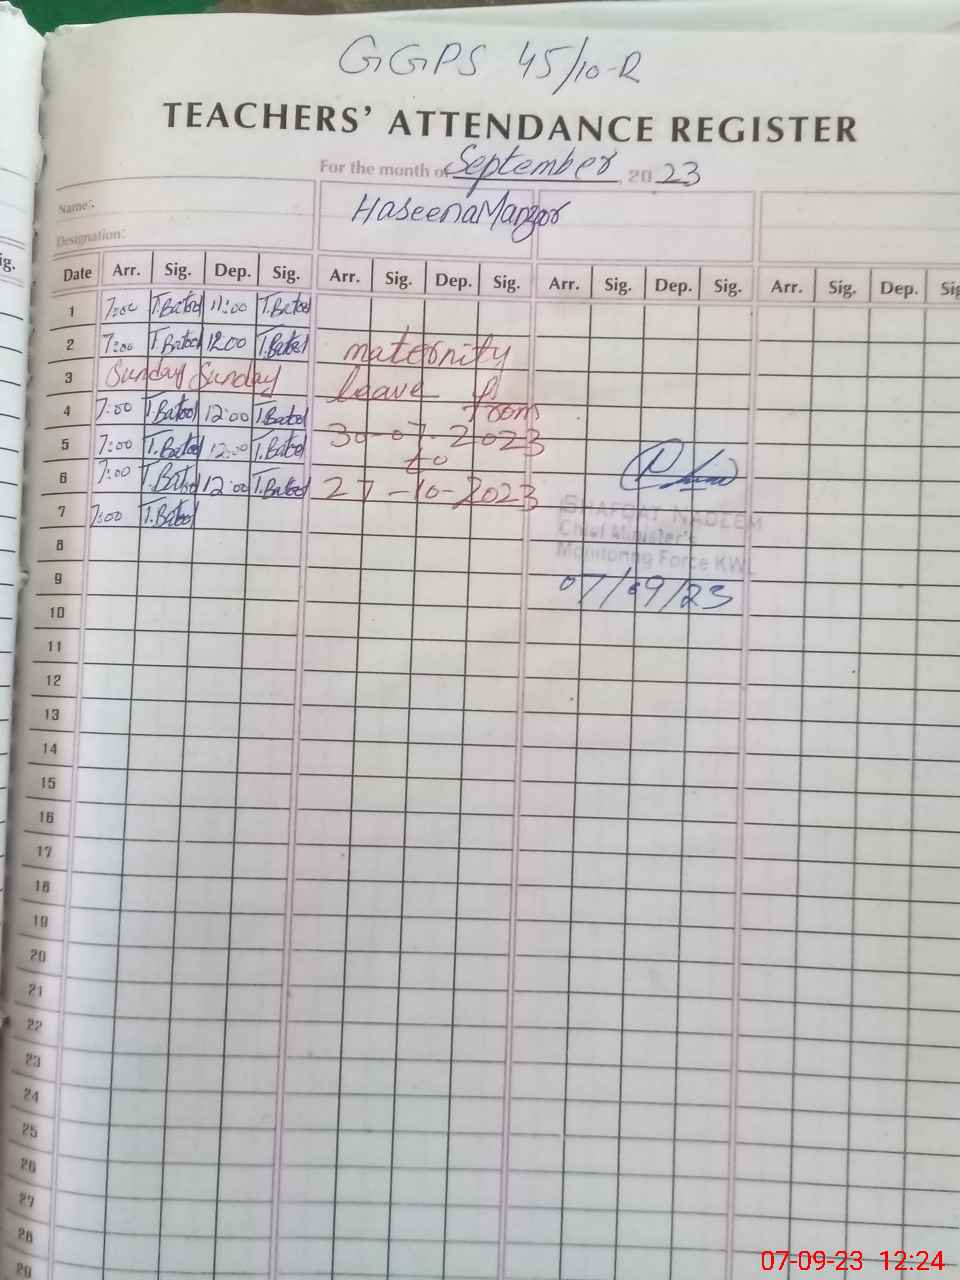 GGPS 45/10-R
TEACHERS' ATTENDANCE REGISTER
For the month of September, 2023
Name:
Haseena Manzoor
Designation:
ig.
Date Arr. Sig. Dep. Sig. Arr. Sig. Dep. Sig. Arr. Sig. Dep. Sig. Arr. Sig. Dep. Sig
1 7:00 T.Batool 11:00 T.Batool
2 7:00 T.Batool 12:00 T.Batool maternity
3 Sunday Sunday leave from
4 7:00 T.Batool 12:00 T.Batool
5 7:00 T.Batool 12:00 T.Batool 30-07-2023
to
6 7:00 T.Batool 12:00 T.Batool 27-10-2023
7 7:00 T.Batool
SHAFQAT NADEEM
Chief Minister's
8
Monitoring Force KWL
9 07/09/23
10
11
12
13
14
15
16
17
18
19
20
21
22
23
24
25
26
27
28
29
07-09-23 12:24